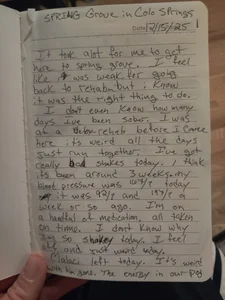 SPRING Grove in Colo Springs
Date 12/15/25
It took alot for me to get
here to spring grove. I feel
like it was weak for going
back to rehab but i know
it was the right thing to do.
I don't even know how many
days ive been sober. I was
at a rehab before I came
here its weird all the days
just run together. I've got
really bad shakes today. I think
its been around 3 weeks. my
blood pressure was today
it was 92/ and a
week or so ago. I'm on
a handful of medication, all taken
on time. I don't know why
I'm so shakey today. I feel
and just weird today.
left today. It's weird
with him gone. The energy in our